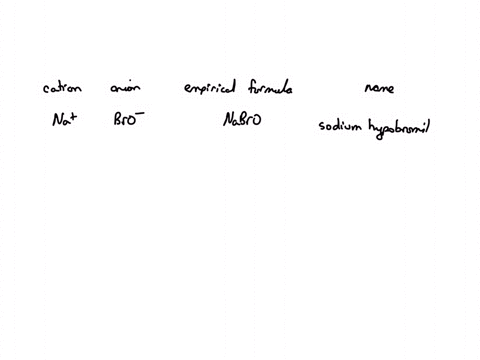 cation anion empirical formula name
Na⁺ BrO⁻ NaBrO sodium hypobromit